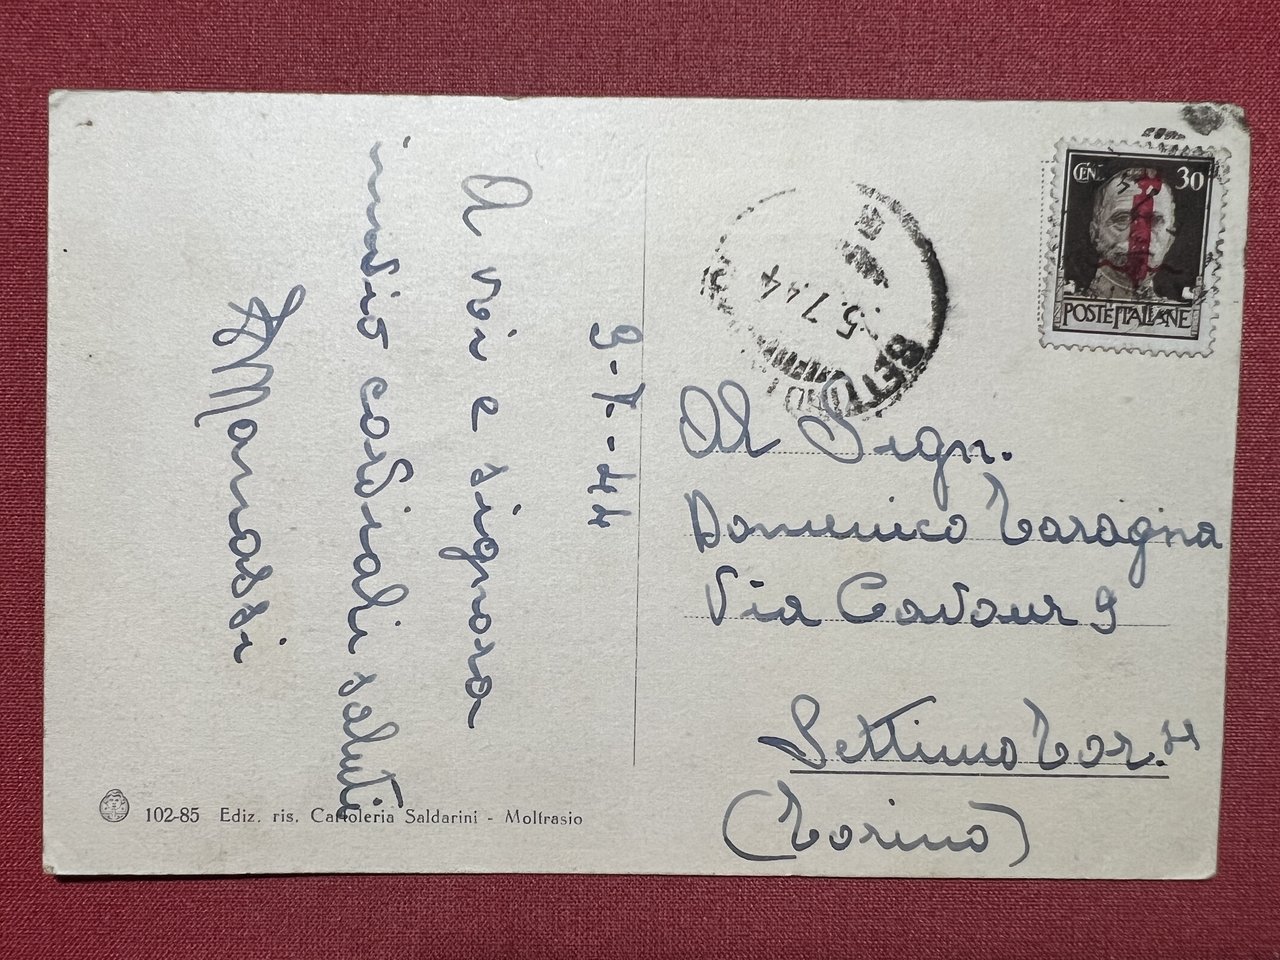 3-7-44
A voi e signora
invio cordiali saluti
Manassi
102-85 Ediz. ris. Cartoleria Saldarini - Moltrasio
CENT. 30
POSTE ITALIANE
5.7.44
SETTI
Al Sign.
Domenico Taragna
Via Cavour 9
Settimo Tor.
(Torino)